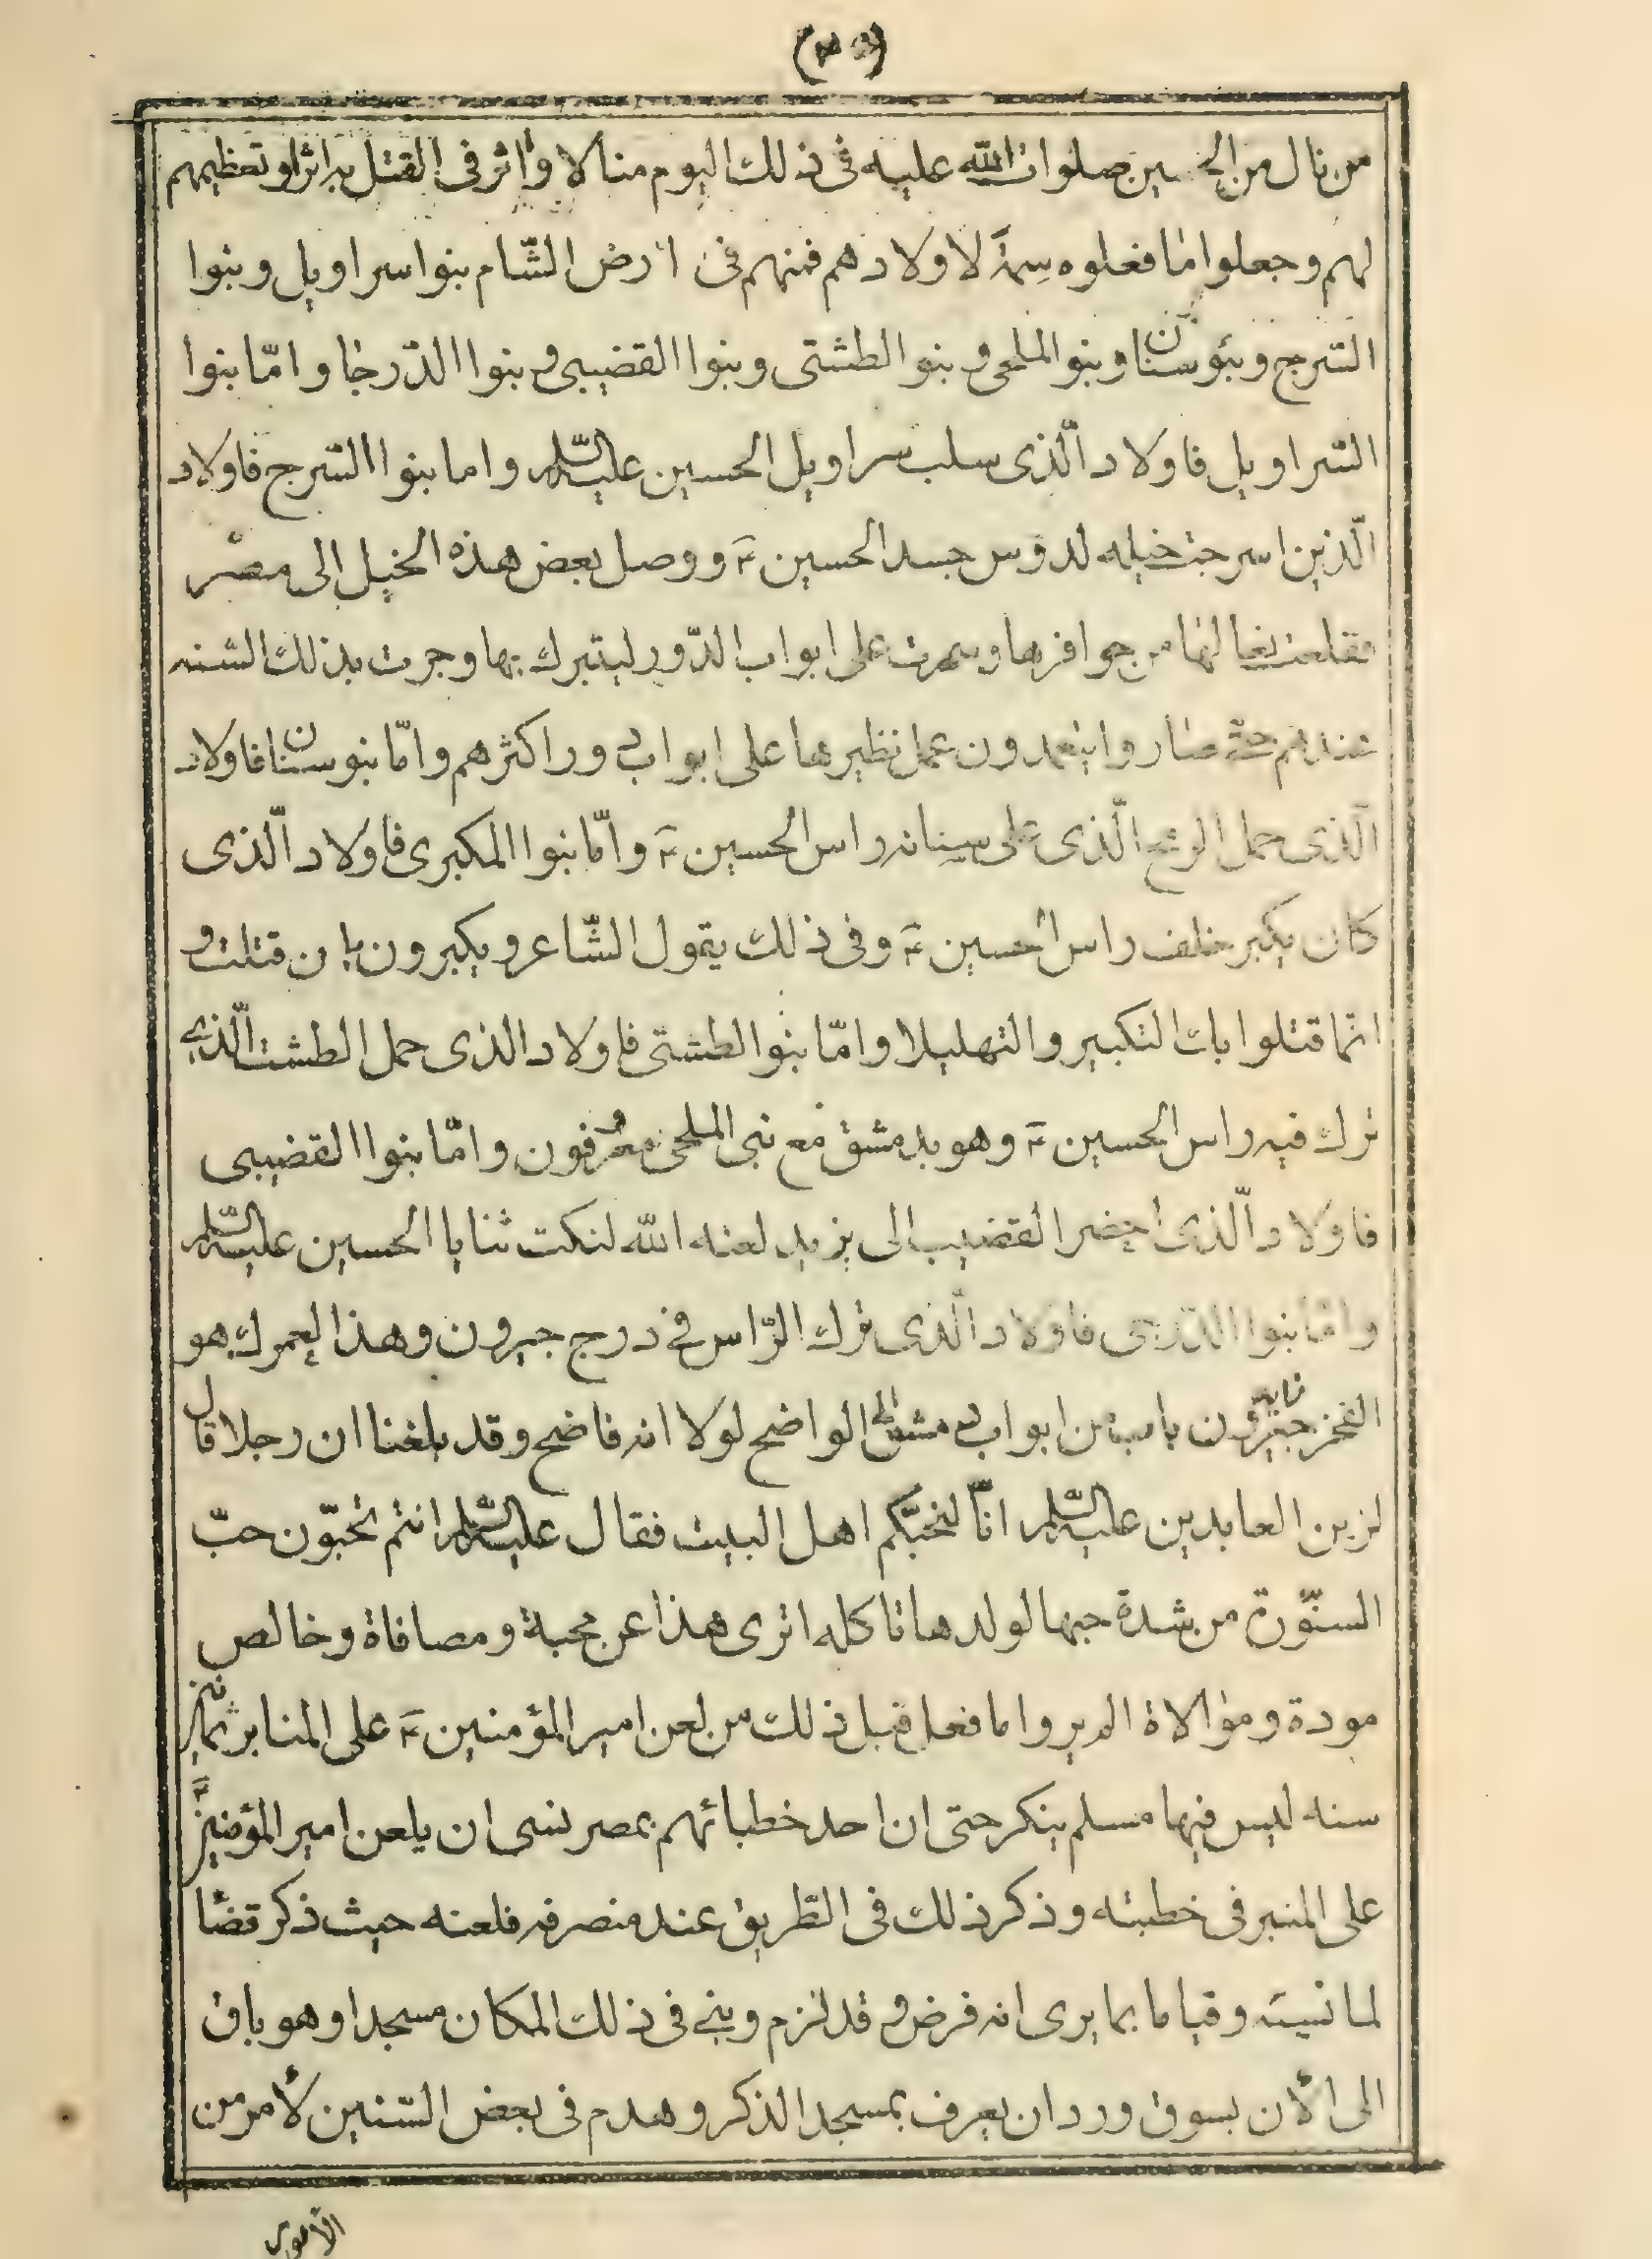 من نال من الحسين صلوات الله عليه فى ذلك اليوم منالا واثر فى القتل به اثرا وتعظيمهم
لهم وجعلوا ما فعلوه سمة لاولادهم فمنهم فى ارض الشّام بنوا سراويل وبنوا
السّرج وبنوسنان وبنو الملحى وبنوا الطشتى وبنوا القضيبى وبنوا الدّرجا وامّا بنوا
السّراويل فاولاد الّذى سلب سراويل الحسين عليه السّلم واما بنوا السّرج فاولاد
الّذين اسرجت خيله لدوس جسد الحسين ٤ ووصل بعض هذه الخيل الى مصر
فقلعت نعالها من حوافرها وسمرت على ابواب الدّور ليتبرك بها وجرت بذلك السّنه
عندهم حتّى صاروا يتعمدون عمل نظيرها على ابواب دور اكثرهم وامّا بنوسنان فاولاد
الّذى حمل الرمح الّذى على سنانه راس الحسين ٤ وامّا بنوا المكبرى فاولاد الّذى
كان يكبر خلف راس الحسين ٤ وفى ذلك يقول الشّاعر ويكبرون بان قتلت و
انّما قتلوا بك التكبير والتهليلا وامّا بنوا الطشتى فاولاد الذى حمل الطشت الّذى
ترك فيه راس الحسين ٤ وهو بدمشق مع بنى الملحى معروفون وامّا بنوا القضيبى
فاولاد الّذى احضر القضيب الى يزيد لعنه الله لنكت ثنايا الحسين عليه السّلم
وامّا بنوا الدّرجى فاولاد الّذى ترك الرّاس فى درج جيرون وهذا لعمرك هو
الفخر جيرون باب من ابواب دمشق الواضح لولا انه فاضح وقد بلغنا ان رجلا قال
لزين العابدين عليه السّلم انّا لنحبّكم اهل البيت فقال عليه السّلم انتم تحبّون حبّ
السنّورة من شدة حبها لولدها تاكله اترى هذا عن محبة ومصافاة وخالص
مودة وموالاة الم ير واما فعل قبل ذلك من لعن امير المؤمنين ٤ على المنابر ثمانين
سنه ليس فيها مسلم ينكر حتى ان احد خطبائهم بمصر نسى ان يلعن امير المؤمنين ٤
على المنبر فى خطبته وذكر ذلك فى الطّريق عند منصرفه فلعنه حيث ذكر قضا
لما نسيه وقياما بما يرى انه فرض وقد لزم وبنى فى ذلك المكان مسجدا وهو باق
الى الأن بسوق وردان يعرف بمسجد الذكر وهدم فى بعض السّنين لأمر من
الأمور